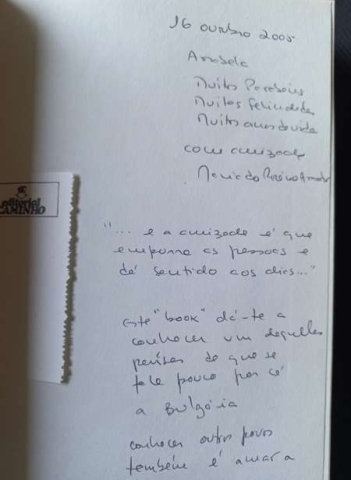 16 outubro 2005
Anabela
Muitos Parabéns
Muitas felicidades
Muitos anos de vida
com amizade
Maria do
editorial
CAMINHO
"... e a amizade é que
empurra as pessoas e
dá sentido aos dias..."
este "book" dá-te a
conhecer um daqueles
países de que se
fala pouco por cá
a Bulgária
conhecer outros povos
também é amar a